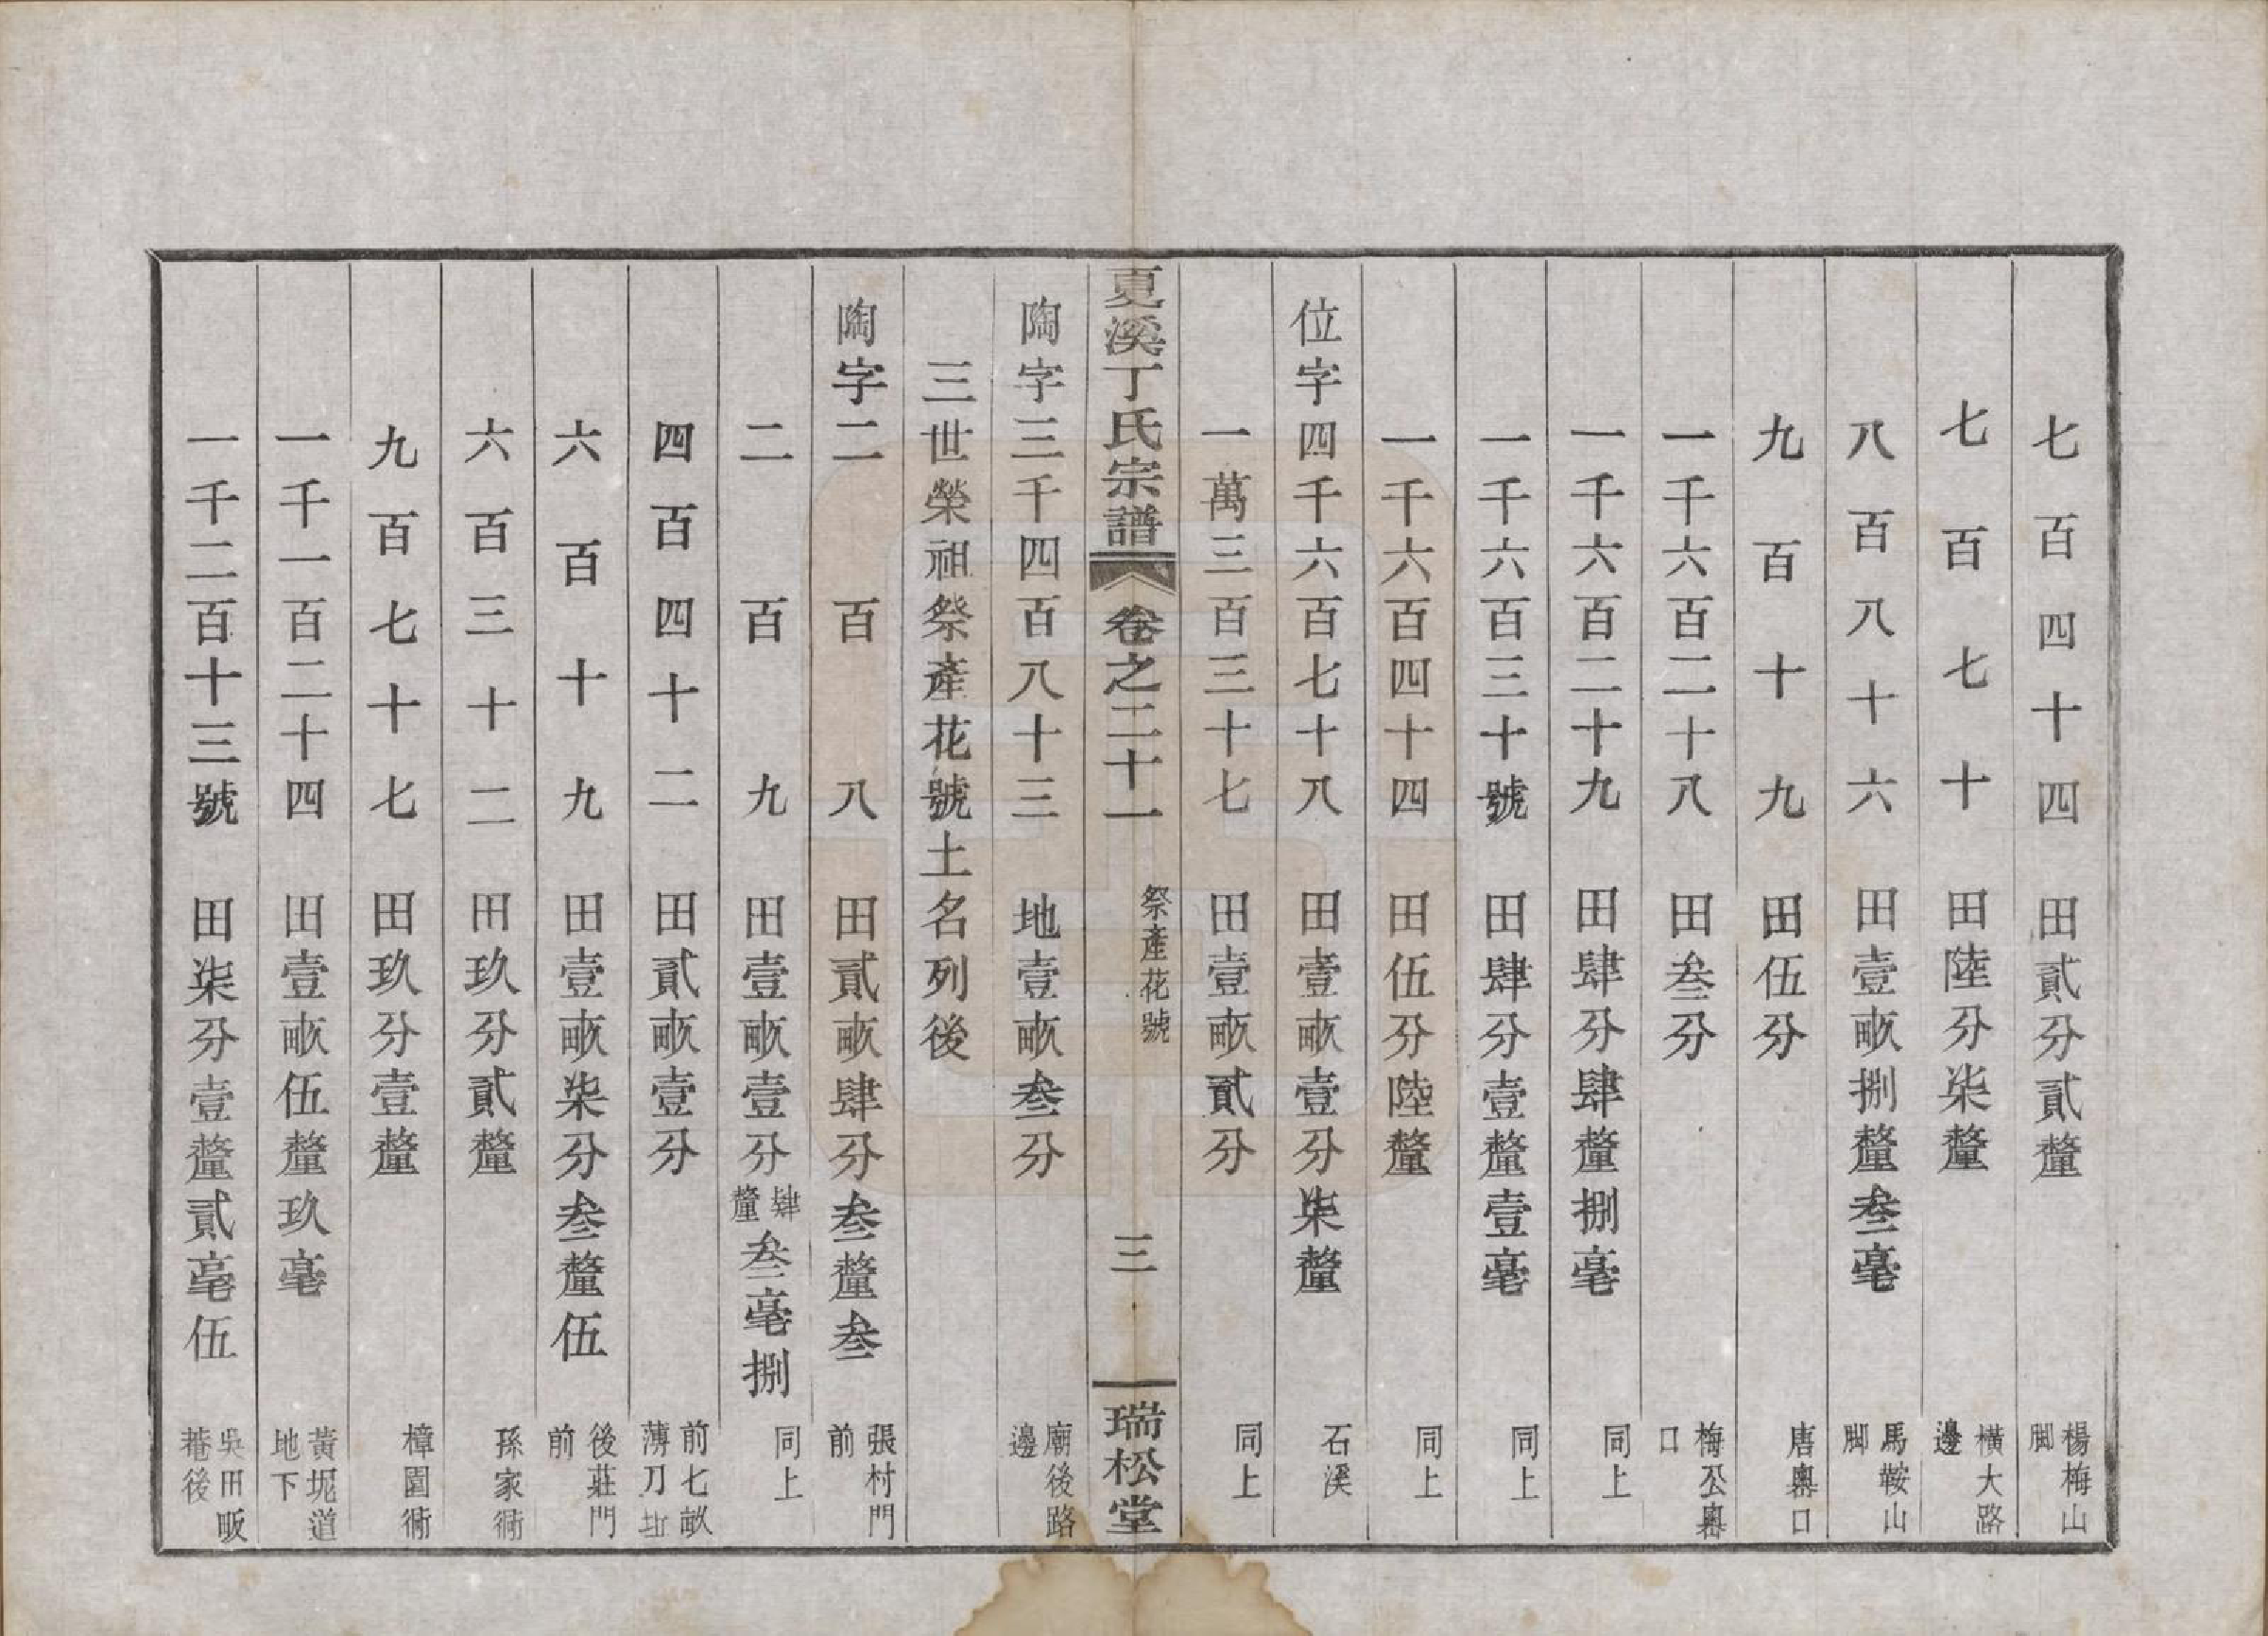 七百四十四　田貳分貳釐　楊梅山脚
七百七十　田陸分柒釐　橫大路邊
八百八十六　田壹畝捌釐叁毫　馬鞍山脚
九百十九　田伍分　唐奧口
一千六百二十八　田叁分　梅公奧口
一千六百二十九　田肆分肆釐捌毫　同上
一千六百三十號　田肆分壹釐壹毫　同上
一千六百四十四　田伍分陸釐　同上
位字四千六百七十八　田壹畝壹分柒釐　石溪
一萬三百三十七　田壹畝貳分　同上
夏溪丁氏宗譜　卷之二十一　祭產花號　三　瑞松堂
陶字三千四百八十三　地壹畝叁分　廟後路邊
三世榮祖祭產花號土名列後
陶字二百八　田貳畝肆分叁釐叁　張村門前
二百九　田壹畝壹分肆釐叁毫捌　同上
四百四十二　田貳畝壹分　前七畝薄刀坵
六百十九　田壹畝柒分叁釐伍　後莊門前
六百三十二　田玖分貳釐　孫家衕
九百七十七　田玖分壹釐　樟園衕
一千一百二十四　田壹畝伍釐玖毫　黃坭道地下
一千二百十三號　田柒分壹釐貳毫伍　吳田畈菴後